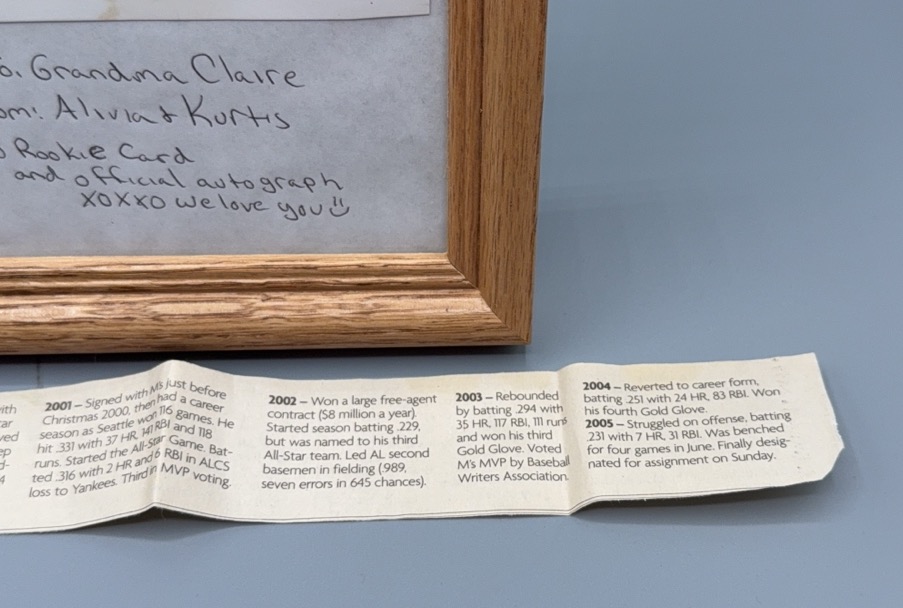 o. Grandma Claire
om: Alivia & Kurtis
o Rookie Card
and official autograph
XOXXO We love you
ith
ar
ved
ep
d-
4
2001 – Signed with M's just before
Christmas 2000, then had a career
season as Seattle won 116 games. He
hit .331 with 37 HR, 141 RBI and 118
runs. Started the All-Star Game. Bat-
ted .316 with 2 HR and 6 RBI in ALCS
loss to Yankees. Third in MVP voting.
2002 – Won a large free-agent
contract ($8 million a year).
Started season batting .229,
but was named to his third
All-Star team. Led AL second
basemen in fielding (.989,
seven errors in 645 chances).
2003 – Rebounded
by batting .294 with
35 HR, 117 RBI, 111 runs
and won his third
Gold Glove. Voted
M's MVP by Baseball
Writers Association.
2004 – Reverted to career form,
batting .251 with 24 HR, 83 RBI. Won
his fourth Gold Glove.
2005 – Struggled on offense, batting
.231 with 7 HR, 31 RBI. Was benched
for four games in June. Finally desig-
nated for assignment on Sunday.